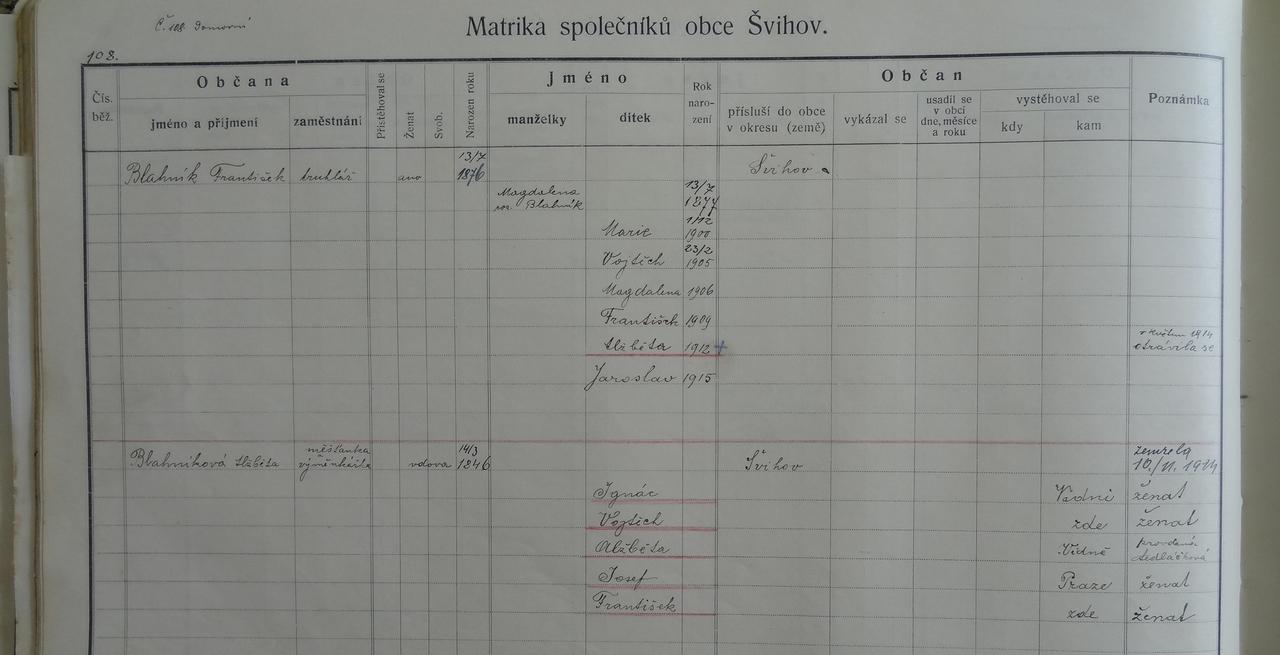 Č. 108 Domovní
Matrika společníků obce Švihov.
108.
Čís. běž.
Občana
jméno a příjmení
zaměstnání
Přistěhoval se
Ženat
Svob.
Narozen roku
Jméno
manželky
dítek
Rok naro- zení
Občan
přísluší do obce v okresu (země)
vykázal se
usadil se v obci dne, měsíce a roku
vystěhoval se
kdy
kam
Poznámka
Blahník František truhlář ano 13/7 1876 Švihov
Magdalena roz. Blahník 13/7 1877
Marie 1/12 1900
Vojtěch 23/2 1905
Magdalena 1906
František 1909
Alžběta 1912 + v květnu 1914 otrávila se
Jaroslav 1915
Blahníková Alžběta měšťanka výměnkářka vdova 14/3 1846 Švihov zemřela 10./11. 1914
Ignác Vídni ženat
Vojtěch zde ženat
Alžběta Vídně provdaná Sedláčková
Josef Praze ženat
František zde ženat